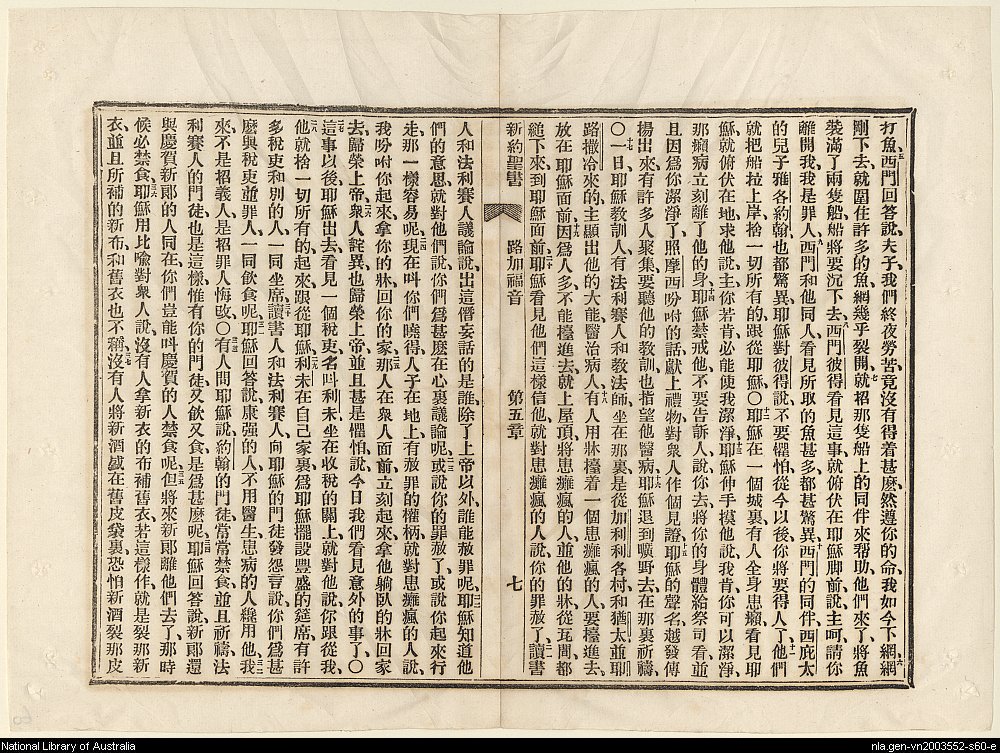 打魚西門回答說夫子我們終夜勞苦竟沒有得着甚麽然遵你的命我如今下網六網
剛下去就圍住許多的魚網幾乎裂開七就招那隻船上的同伴來帮助他們來了將魚
裝滿了兩隻船船將要沉下去八西門彼得看見這事就俯伏在耶穌脚前說主呵請你
離開我我是罪人九西門和他同人人看見所取的魚甚多都甚驚異十西門的同伴西庇太
的兒子雅各約翰也都驚異耶穌對彼得說不要懼怕從今以後你將要得人了十一他們
就把船拉上岸捨一切所有的跟從耶穌〇十二耶穌在一個城裏有人全身患癩看見耶
穌就俯伏在地求他說主你若肯必能使我潔淨十三耶穌伸手摸他說我肯你可以潔淨
那癩病立刻離了他的身十四耶穌禁戒他不要告訴人說你去將你的身體給祭司看並
且因爲你潔淨了照摩西吩咐的話獻上禮物對衆人作個見證十五耶穌的聲名越發傳
揚出來有許多人聚集要聽他的教訓也指望他醫病十六耶穌退到曠野去在那裏祈禱
〇十七一日耶穌教訓人有法利賽人和教法師坐在那裏是從加利利各村和猶太並耶
路撒冷來的主顯出他的大能醫治病人十八有人用牀擡着一個患癱瘋的人要擡進去
放在耶穌面前十九因爲人多不能擡進去就上屋頂將患癱瘋的人並他的牀從瓦間都
縋下來到耶穌面前二十耶穌看見他們這樣信他就對患癱瘋的人說你的罪赦了二一讀書
新約聖書 路加福音 第五章 七
人和法利賽人議論說出這僭妄話的是誰除了上帝以外誰能赦罪呢二二耶穌知道他
們的意思就對他們說你們爲甚麽在心裏議論呢二三或說你的罪赦了或說你起來行
走那一樣容易呢二四現在呌你們曉得人子在地上有赦罪的權柄就對患癱瘋的人說
我吩咐你起來拿你的牀回你的家二五那人在衆人面前立刻起來拿他躺臥的牀回家
去歸榮上帝二六衆人詫異也歸榮上帝並且甚是懼怕說今日我們看見意外的事了〇
二七這事以後耶穌出去看見一個稅吏名呌利未坐在收稅的關上就對他說你跟從我
二八他就捨一切所有的起來跟從耶穌二九利未在自己家裏爲耶穌擺設豐盛的筵席有許
多稅吏和別的人一同坐席三十讀書人和法利賽人向耶穌的門徒發怨言說你們爲甚
麽與稅吏並罪人一同飲食呢三一耶穌回答說康强的人不用醫生患病的人纔用他三二我
來不是招義人是招罪人悔改〇三三有人問耶穌說約翰的門徒當當禁食並且祈禱法
利賽人的門徒也是這樣惟有你的門徒又飲又食是爲甚麽呢三四耶穌回答說新郎還
與慶賀新郎的人同在你們豈能呌慶賀的人禁食呢三五但將來新郎離他們去了那時
候必禁食三六耶穌用比喩對衆人說沒有人拿新衣的布補舊衣若這樣作就是裂那新
衣並且所補的新布和舊衣也不稱三七沒有人將新酒盛在舊皮袋裏恐怕新酒裂那皮
National Library of Australia
nla.gen-vn2003552-s60-e